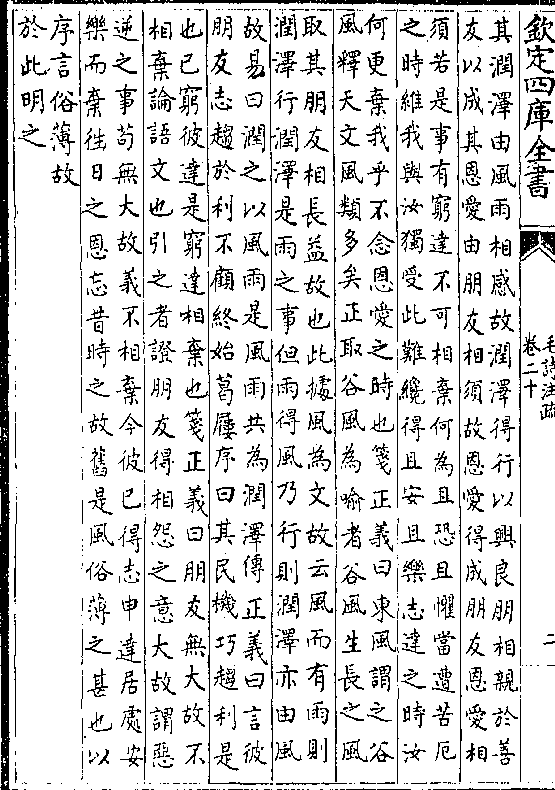 欽定四庫全書
毛詩注疏
卷二十
二
其潤澤由風雨相感故潤澤得行以興良朋相親於善
友以成其恩愛由朋友相須故恩愛得成朋友恩愛相
須若是事有窮達不可相棄何為且恐且懼當遭苦厄
之時維我與汝獨受此難纔得且安且樂志達之時汝
何更棄我乎不念恩愛之時也箋正義曰東風謂之谷
風釋天文風類多矣正取谷風為喻者谷風生長之風
取其朋友相長益故也此據風為文故云風而有雨則
潤澤行潤澤是雨之事但雨得風乃行則潤澤亦由風
故易曰潤之以風雨是風雨共為潤澤傳正義曰言彼
朋友志趨於利不顧終始葛屨序曰其民機巧趨利是
也已窮彼達是窮達相棄也箋正義曰朋友無大故不
相棄論語文也引之者證朋友得相怨之意大故謂惡
逆之事苟無大故義不相棄今彼已得志申達居處安
樂而棄徃日之恩忘昔時之故舊是風俗薄之甚也以
序言俗薄故
於此明之